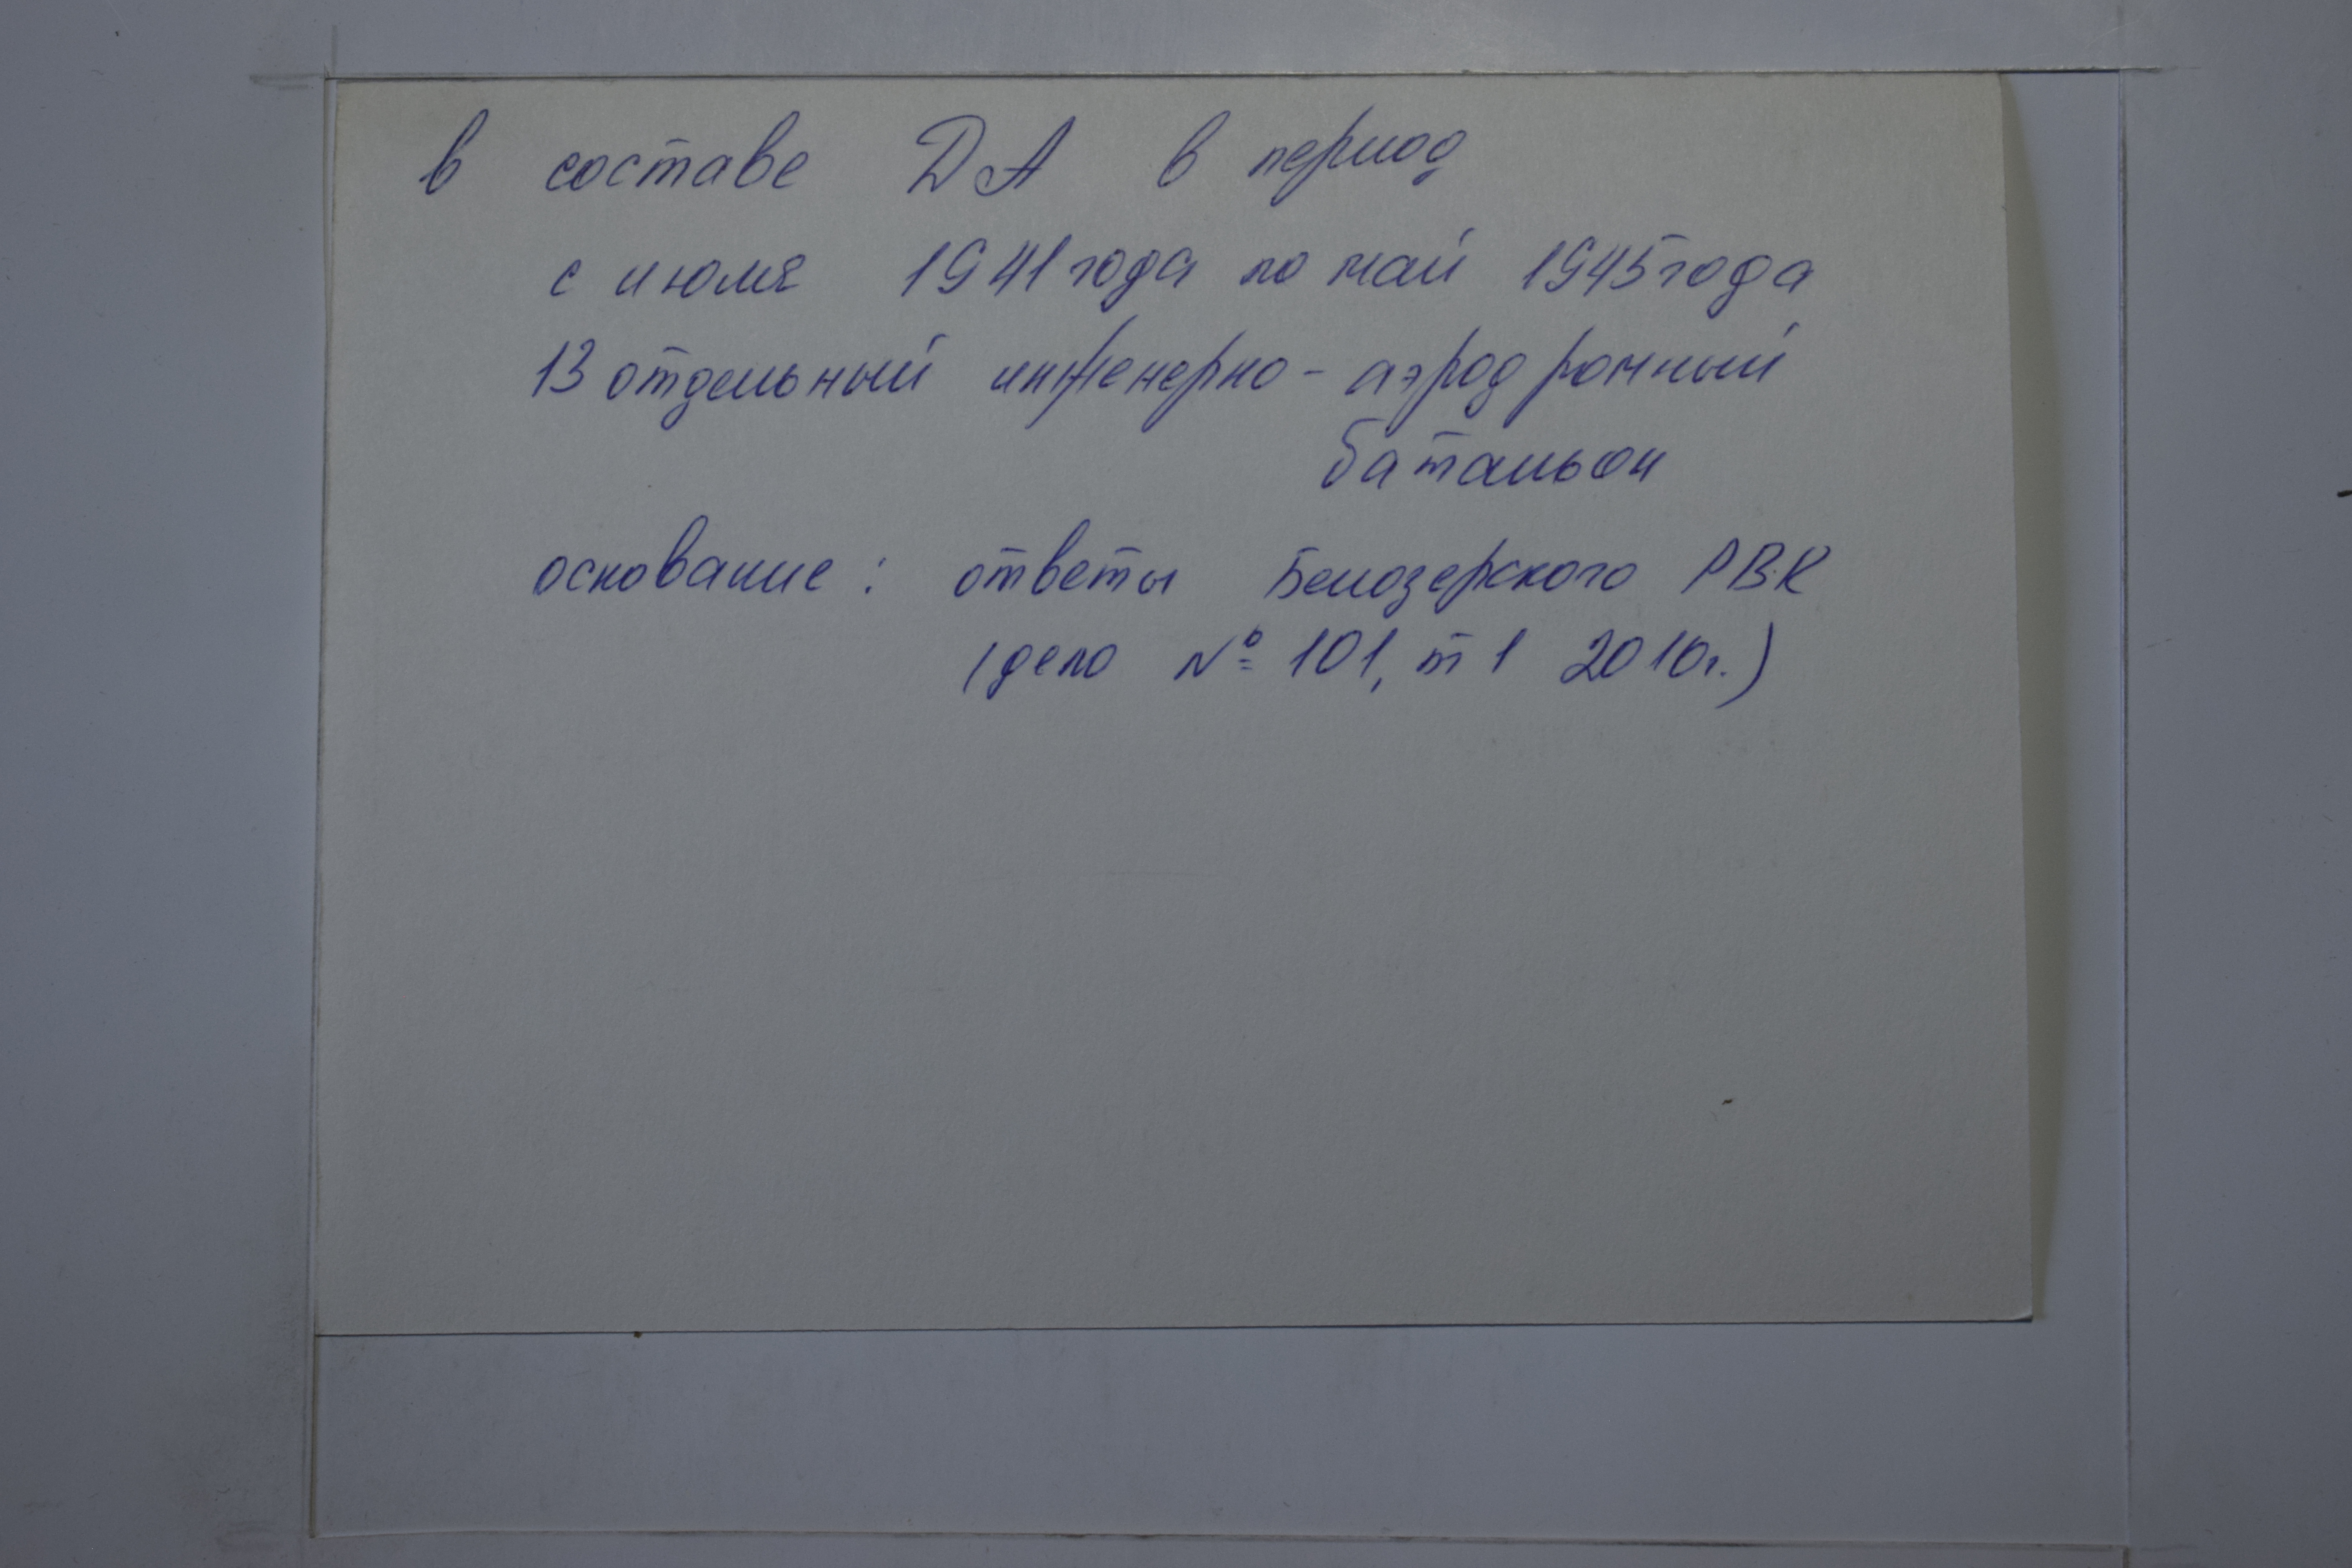 в составе ДА в период
с июля 1941 года по май 1945 года
13 отдельный инженерно-аэродромный
батальон
основание: ответы Белозерского РВК
(дело № 101, т 1 2010г.)